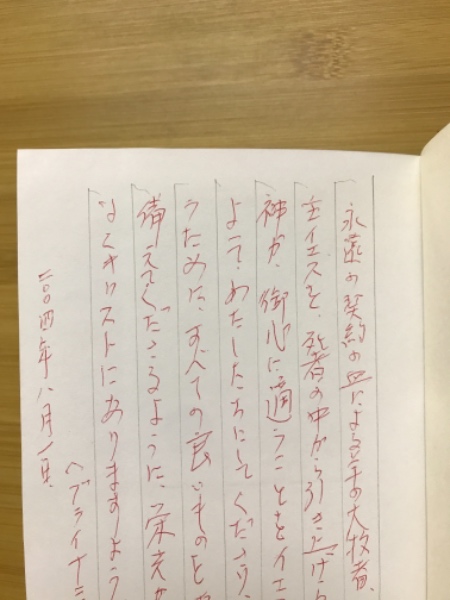 永遠の契約の血による羊の大牧者、
主イエスを、死者の中から引き上げら
神が、御心に適うことをイエ
よって、わたしたちにしてくださり、
うために、すべての良いものを
備えてくださるように、栄光が
なくキリストにありますよう
二〇〇四年八月一日、
ヘブライ